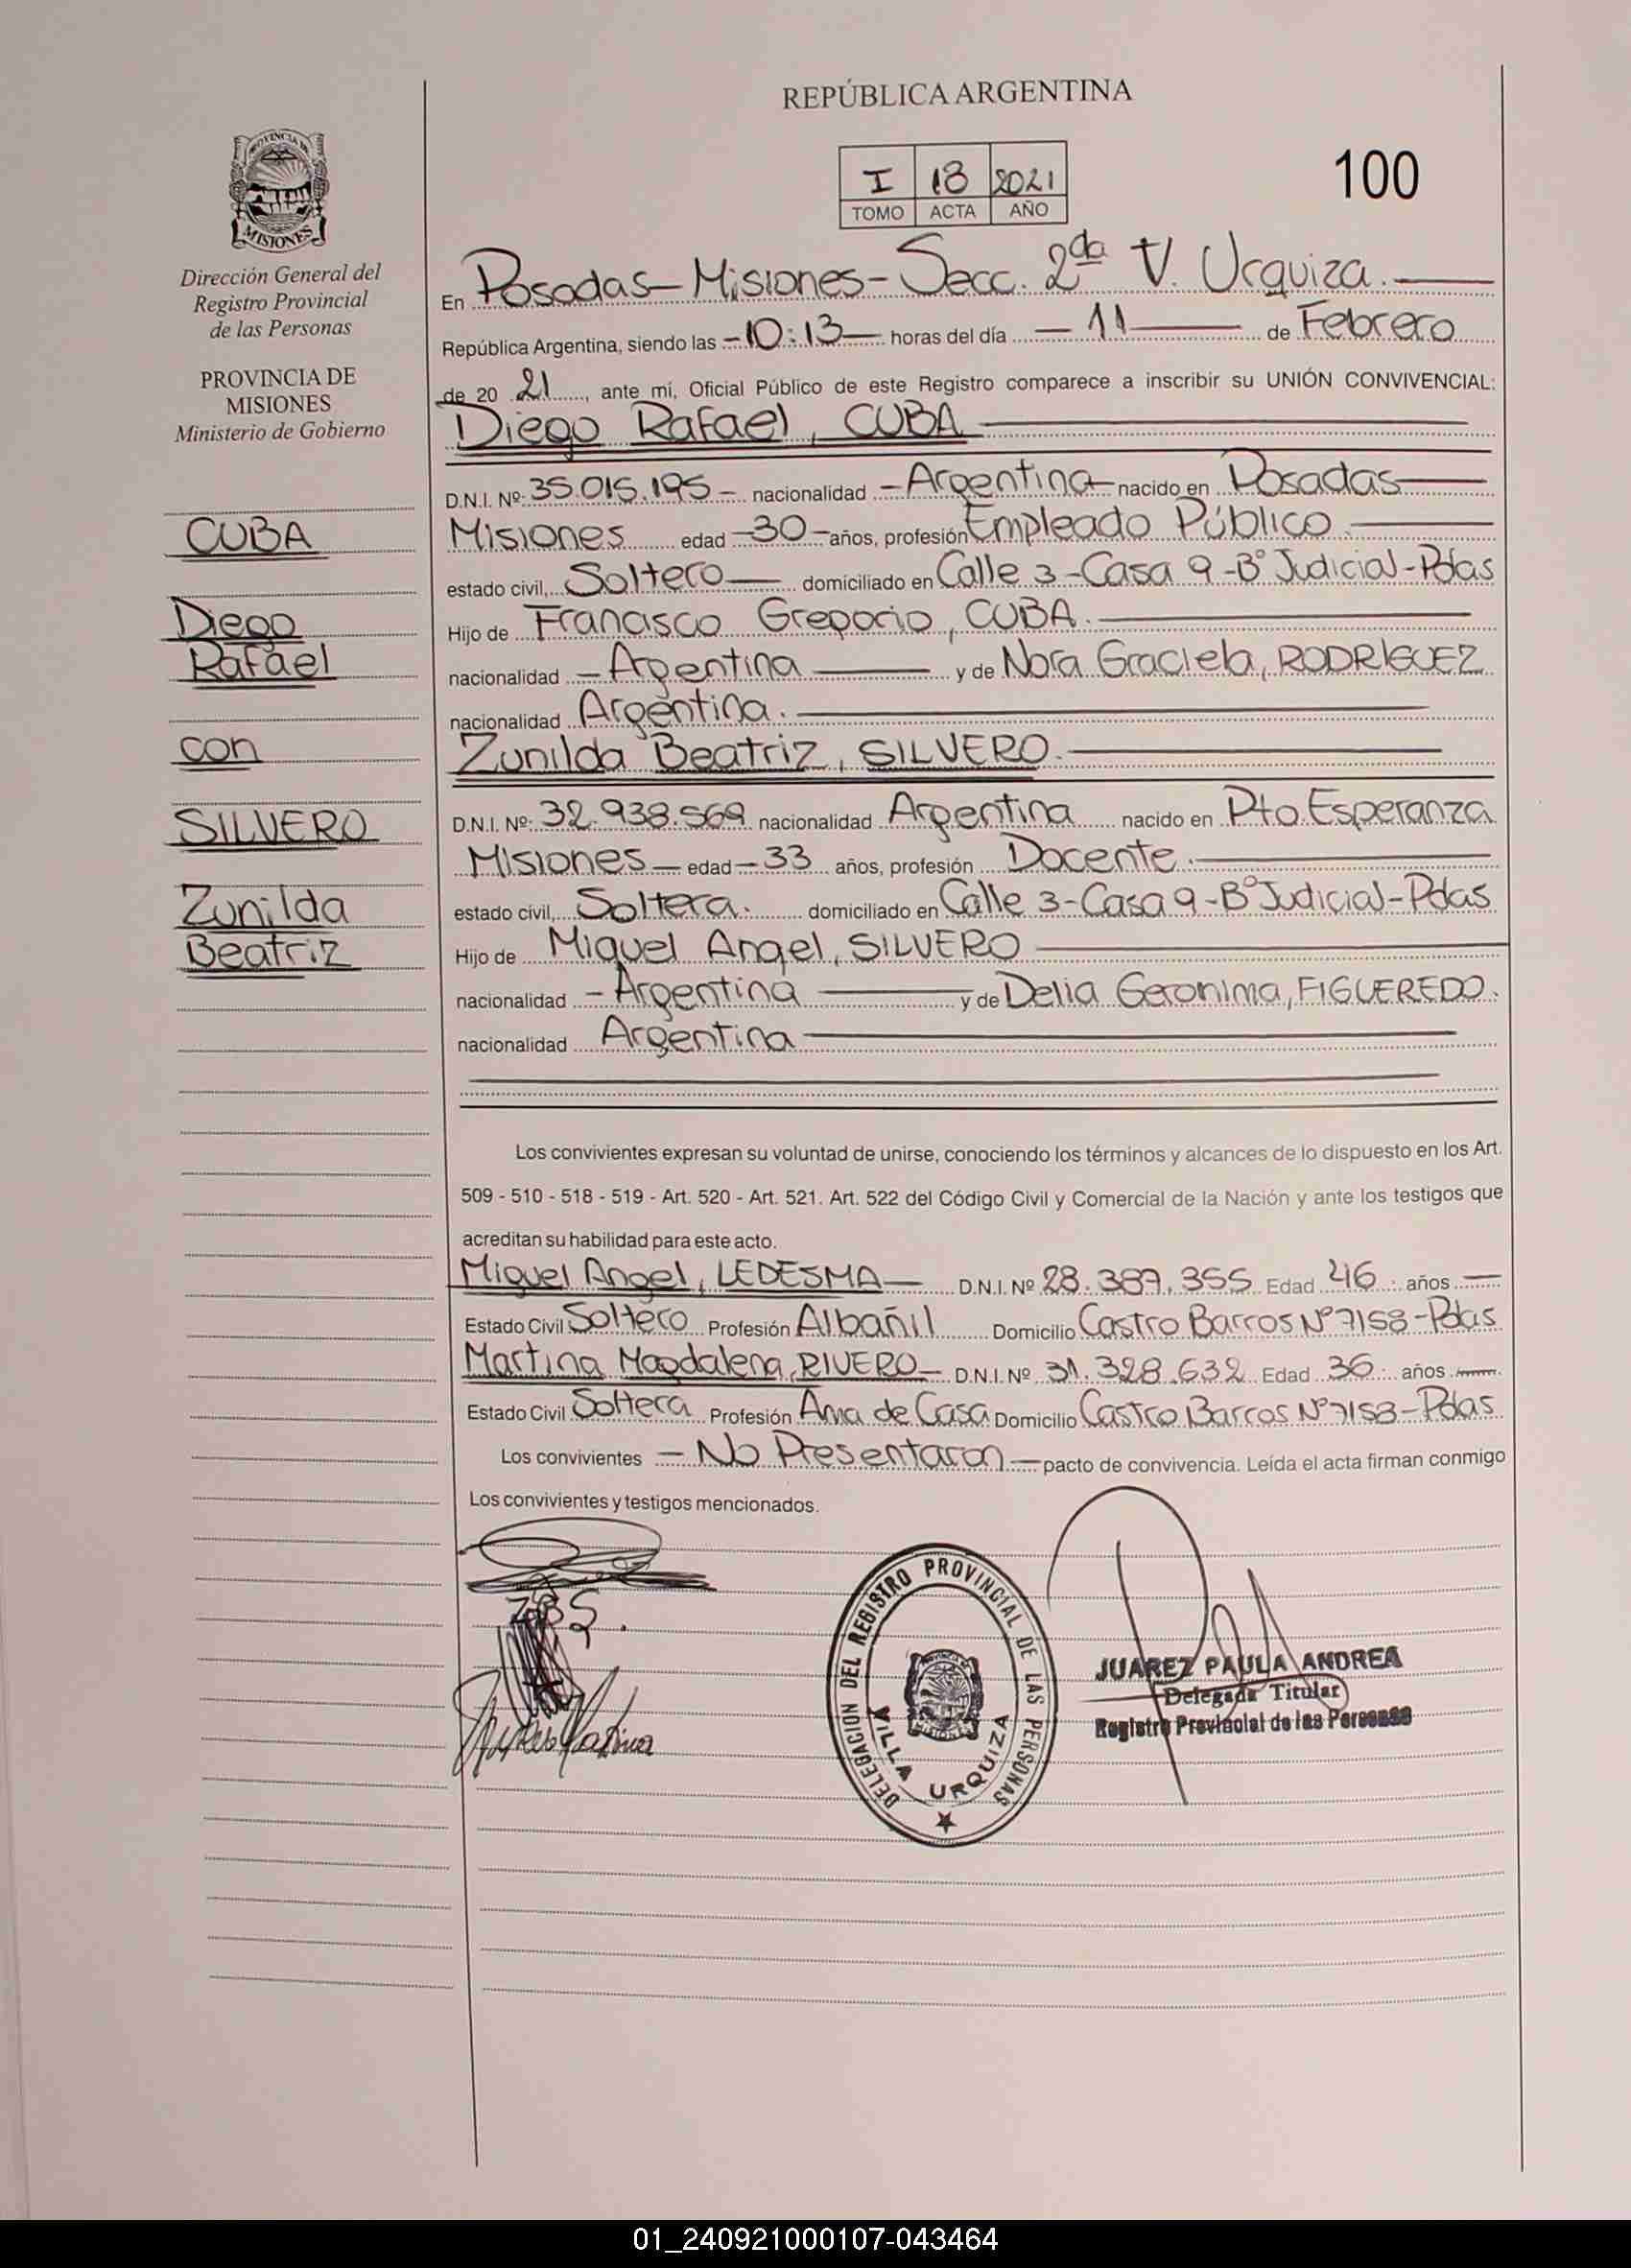 REPÚBLICA ARGENTINA
I 18 2021
TOMO ACTA AÑO
100
PROVINCIA DE
MISIONES
Dirección General del
Registro Provincial
de las Personas
PROVINCIA DE
MISIONES
Ministerio de Gobierno
CUBA
Diego
Rafael
con
SILVERO
Zunilda
Beatriz
En Posadas-Misiones-Secc. 2da V. Urquiza.
República Argentina, siendo las -10:13- horas del día -11- de Febrero
de 20 21, ante mí, Oficial Público de este Registro comparece a inscribir su UNIÓN CONVIVENCIAL:
Diego Rafael, CUBA
D.N.I. Nº: 35.015.195- nacionalidad -Argentina- nacido en Posadas
Misiones edad -30- años, profesión Empleado Público.
estado civil, Soltero domiciliado en Calle 3-Casa 9-Bº Judicial-Pdas
Hijo de Francisco Gregorio, CUBA.
nacionalidad -Argentina y de Nora Graciela, RODRIGUEZ
nacionalidad Argentina.
Zunilda Beatriz, SILVERO.
D.N.I. Nº: 32.938.569 nacionalidad Argentina nacido en Pto Esperanza
Misiones- edad -33 años, profesión Docente.
estado civil, Soltera. domiciliado en Calle 3-Casa 9-Bº Judicial-Pdas
Hijo de Miguel Angel, SILVERO
nacionalidad -Argentina y de Delia Geronima, FIGUEREDO.
nacionalidad Argentina
Los convivientes expresan su voluntad de unirse, conociendo los términos y alcances de lo dispuesto en los Art.
509 - 510 - 518 - 519 - Art. 520 - Art. 521. Art. 522 del Código Civil y Comercial de la Nación y ante los testigos que
acreditan su habilidad para este acto.
Miguel Angel, LEDESMA- D.N.I. Nº 28.387.355 Edad 46 años
Estado Civil Soltero Profesión Albañil Domicilio Castro Barros Nº 7158-Pdas
Martina Magdalena, RIVERO- D.N.I. Nº 31.328.632 Edad 36 años
Estado Civil Soltera Profesión Ama de Casa Domicilio Castro Barros Nº 7158-Pdas
Los convivientes -No Presentaron- pacto de convivencia. Leída el acta firman conmigo
Los convivientes y testigos mencionados.
DELEGACION DEL REGISTRO PROVINCIAL DE LAS PERSONAS
VILLA URQUIZA
JUAREZ PAULA ANDREA
Delegada Titular
Registro Provincial de las Personas
01_240921000107-043464